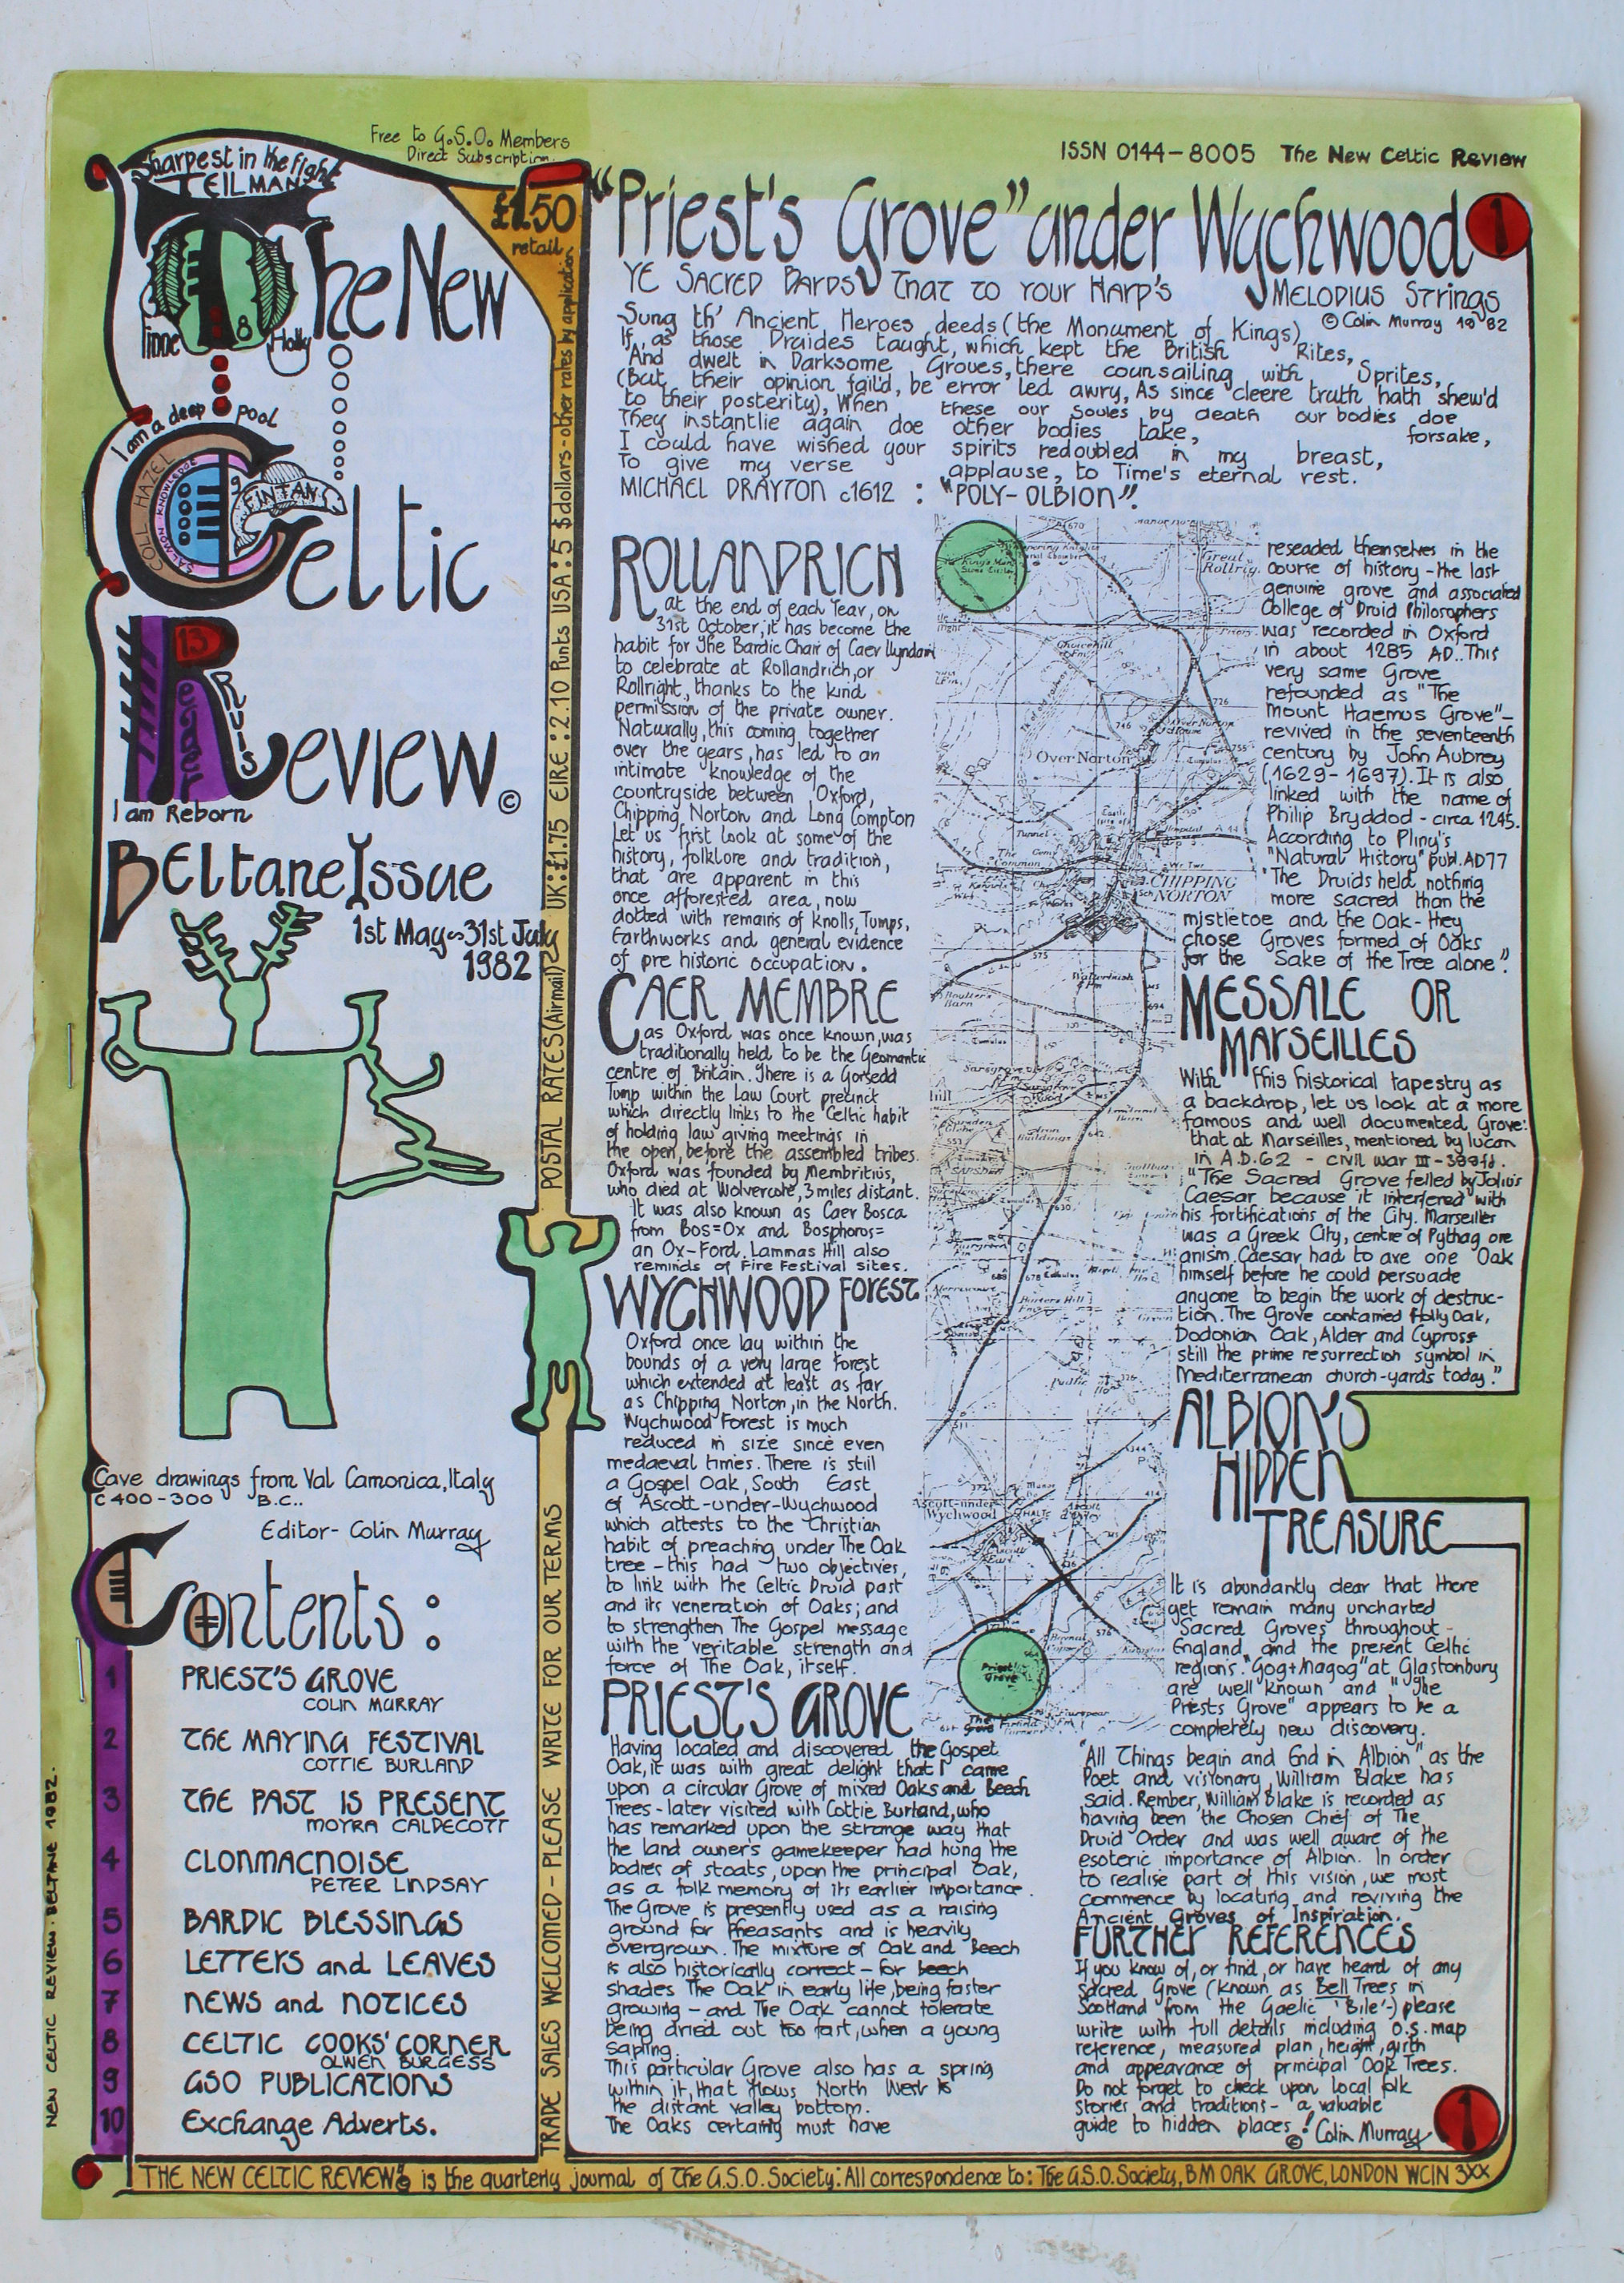 Free to G.S.O. Members
Direct Subscription
ISSN 0144-8005 The New Celtic Review
Sharpest in the fight
TEILMAN
Tinne
8
Holly
The New
I am a deep pool
COLL HAZEL
SALMON KNOWLEDGE
9
FINTAN
Celtic
13
RUIS
Review ©
I am Reborn
£1.50
retail
Beltane Issue
1st May - 31st July
1982
Cave drawings from Val Camonica, Italy
C 400-300 B.C..
Editor - Colin Murray
Contents :
1 PRIEST'S GROVE
COLIN MURRAY
2 THE MAYING FESTIVAL
COTTIE BURLAND
3 THE PAST IS PRESENT
MOYRA CALDECOTT
4 CLONMACNOISE
PETER LINDSAY
5 BARDIC BLESSINGS
6 LETTERS and LEAVES
7 NEWS and NOTICES
8 CELTIC COOKS' CORNER
OLWEN BURGESS
9 GSO PUBLICATIONS
10 Exchange Adverts.
NEW CELTIC REVIEW. BELTANE 1982.
TRADE SALES WELCOMED - PLEASE WRITE FOR OUR TERMS
POSTAL RATES (Airmail) UK:£1.75 EIRE :2.10 Punts USA:5 $ dollars - other rates by application
"Priest's Grove" under Wychwood 1
YE SACRED BARDS THAT TO YOUR HARP'S MELODIUS STRINGS
© Colin Murray 1982
Sung th' Ancient Heroes deeds (the Monument of Kings)
If, as those Druides taught, which kept the British Rites,
And dwelt in Darksome Groves, there counsailing with Sprites,
(But their opinion fail'd, be error led awry, As since cleere truth hath shew'd
to their posterity), When these our soules by death our bodies doe
forsake,
They instantlie again doe other bodies take,
I could have wished your spirits redoubled in my breast,
To give my verse applause, to Time's eternal rest.
MICHAEL DRAYTON c1612 : "POLY-OLBION".
ROLLANDRICH
at the end of each Year, on
31st October, it has become the
habit for The Bardic Chair of Caer Llyndain
to celebrate at Rollandrich, or
Rollright, thanks to the kind
permission of the private owner.
Naturally, this coming together
over the years, has led to an
intimate knowledge of the
countryside between Oxford,
Chipping Norton and Long Compton
Let us first look at some of the
history, folklore and tradition,
that are apparent in this
once afforested area, now
dotted with remains of Knolls, Tumps,
Earthworks and general evidence
of pre historic occupation.
CAER MEMBRE
as Oxford was once known, was
traditionally held to be the Geomantic
centre of Britain. There is a Gorsedd
Tump within the Law Court precinct
which directly links to the Celtic habit
of holding law giving meetings in
the open, before the assembled tribes.
Oxford was founded by Membritius,
who died at Wolvercote, 3 miles distant.
It was also known as Caer Bosca
from Bos=Ox and Bosphoros=
an Ox-Ford. Lammas Hill also
reminds of Fire Festival sites.
WYCHWOOD FOREST
Oxford once lay within the
bounds of a very large Forest
which extended at least as far
as Chipping Norton, in the North.
Wychwood Forest is much
reduced in size since even
medaeval times. There is still
a Gospel Oak, South East
of Ascott-under-Wychwood
which attests to the Christian
habit of preaching under The Oak
tree - this had two objectives,
to link with the Celtic Druid past
and its veneration of Oaks; and
to strengthen The Gospel message
with the veritable strength and
force of The Oak, itself.
PRIEST'S GROVE
Having located and discovered the Gospel
Oak, it was with great delight that I came
upon a circular Grove of mixed Oaks and Beech
Trees - later visited with Cottie Burland, who
has remarked upon the strange way that
the land owner's gamekeeper had hung the
bodies of stoats, upon the principal Oak,
as a folk memory of its earlier importance.
The Grove is presently used as a raising
ground for Pheasants and is heavily
overgrown. The mixture of Oak and Beech
is also historically correct - for beech
shades The Oak in early life, being faster
growing - and The Oak cannot tolerate
being dried out too fast, when a young
sapling.
This particular Grove also has a spring
within it, that flows North West to
the distant valley bottom.
The Oaks certainly must have
Great
Rollrig
Over Norton
The
Common
CHIPPING
NORTON
Ascott-under-
Wychwood
Priest
Grove
reseaded themselves in the
course of history - the last
genuine grove and associated
College of Druid Philosophers
was recorded in Oxford
in about 1285 AD.. This
very same Grove
refounded as "The
Mount Haemus Grove" -
revived in the seventeenth
century by John Aubrey
(1629-1697). It is also
linked with the name of
Philip Bryddod - circa 1245.
According to Pliny's
"Natural History" publ. AD77
"The Druids held nothing
more sacred than the
mistletoe and the Oak - they
chose Groves formed of Oaks
for the Sake of the Tree alone".
MESSALE OR
MARSEILLES
With this historical tapestry as
a backdrop, let us look at a more
famous and well documented Grove:
that at Marseilles, mentioned by Lucan
in A.D.62 - civil war III - 399ff.
"The Sacred Grove felled by Jolius
Caesar because it interfered with
his fortifications of the City. Marseilles
was a Greek City, centre of Pythag ore
anism. Caesar had to axe one Oak
himself before he could persuade
anyone to begin the work of destruc-
tion. The Grove contained Holly Oak,
Dodonian Oak, Alder and Cypross
still the prime resurrection symbol in
Mediterranean church-yards today."
ALBION'S
HIDDEN
TREASURE
It is abundantly clear that there
yet remain many uncharted
Sacred Groves throughout
England, and the present Celtic
regions. "Gog+Magog" at Glastonbury
are well known and "The
Priests Grove" appears to be a
completely new discovery.
"All Things begin and End in Albion" as the
Poet and visionary, William Blake has
said. Rember, William Blake is recorded as
having been the Chosen Chief of The
Druid Order and was well aware of the
esoteric importance of Albion. In order
to realise part of this vision, we must
commence by locating and reviving the
Ancient Groves of Inspiration.
FURTHER REFERENCES
If you know of, or find, or have heard of any
Sacred Grove (known as Bell Trees in
Scotland from the Gaelic 'Bile'-) please
write with full details including O.S. map
reference, measured plan, height, girth
and appearance of principal Oak Trees.
Do not forget to check upon local folk
stories and traditions - a valuable
guide to hidden places!
© Colin Murray
1
THE NEW CELTIC REVIEW is the quarterly journal of The G.S.O. Society: All correspondence to: The G.S.O. Society, BM OAK GROVE, LONDON WC1N 3XX